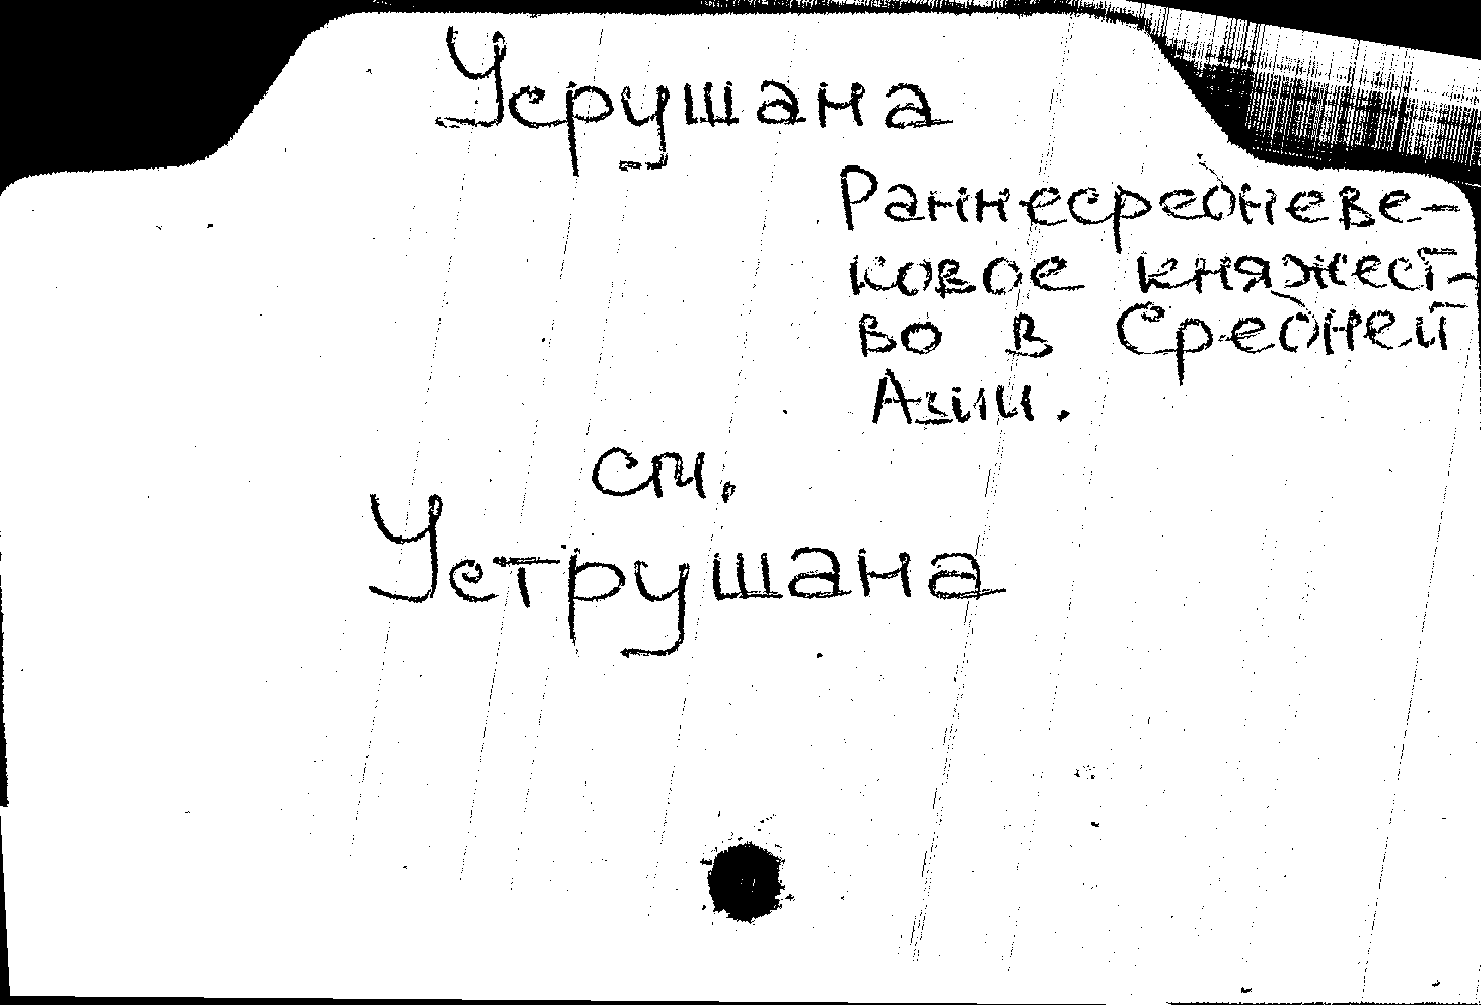 Усрушана
Раннесредневе-
ковое княжест-
во в Средней
Азии.
см.
Уструшана